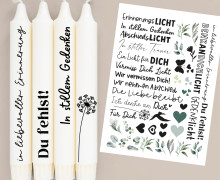 in liebevoller Erinnerung
Du fehlst!
In stillem Gedenken
Erinnerungs LICHT
In stillem Gedenken
Abschieds LICHT
In stiller Trauer
Ein Licht für DICH
Vermiss Dich Licht
Wir vermissen Dich!
WIR NEHMEN ABSCHIED
Die Liebe bleibt
Ich denke an Dich
Für Dich
in liebevoller Erinnerung
Du fehlst!